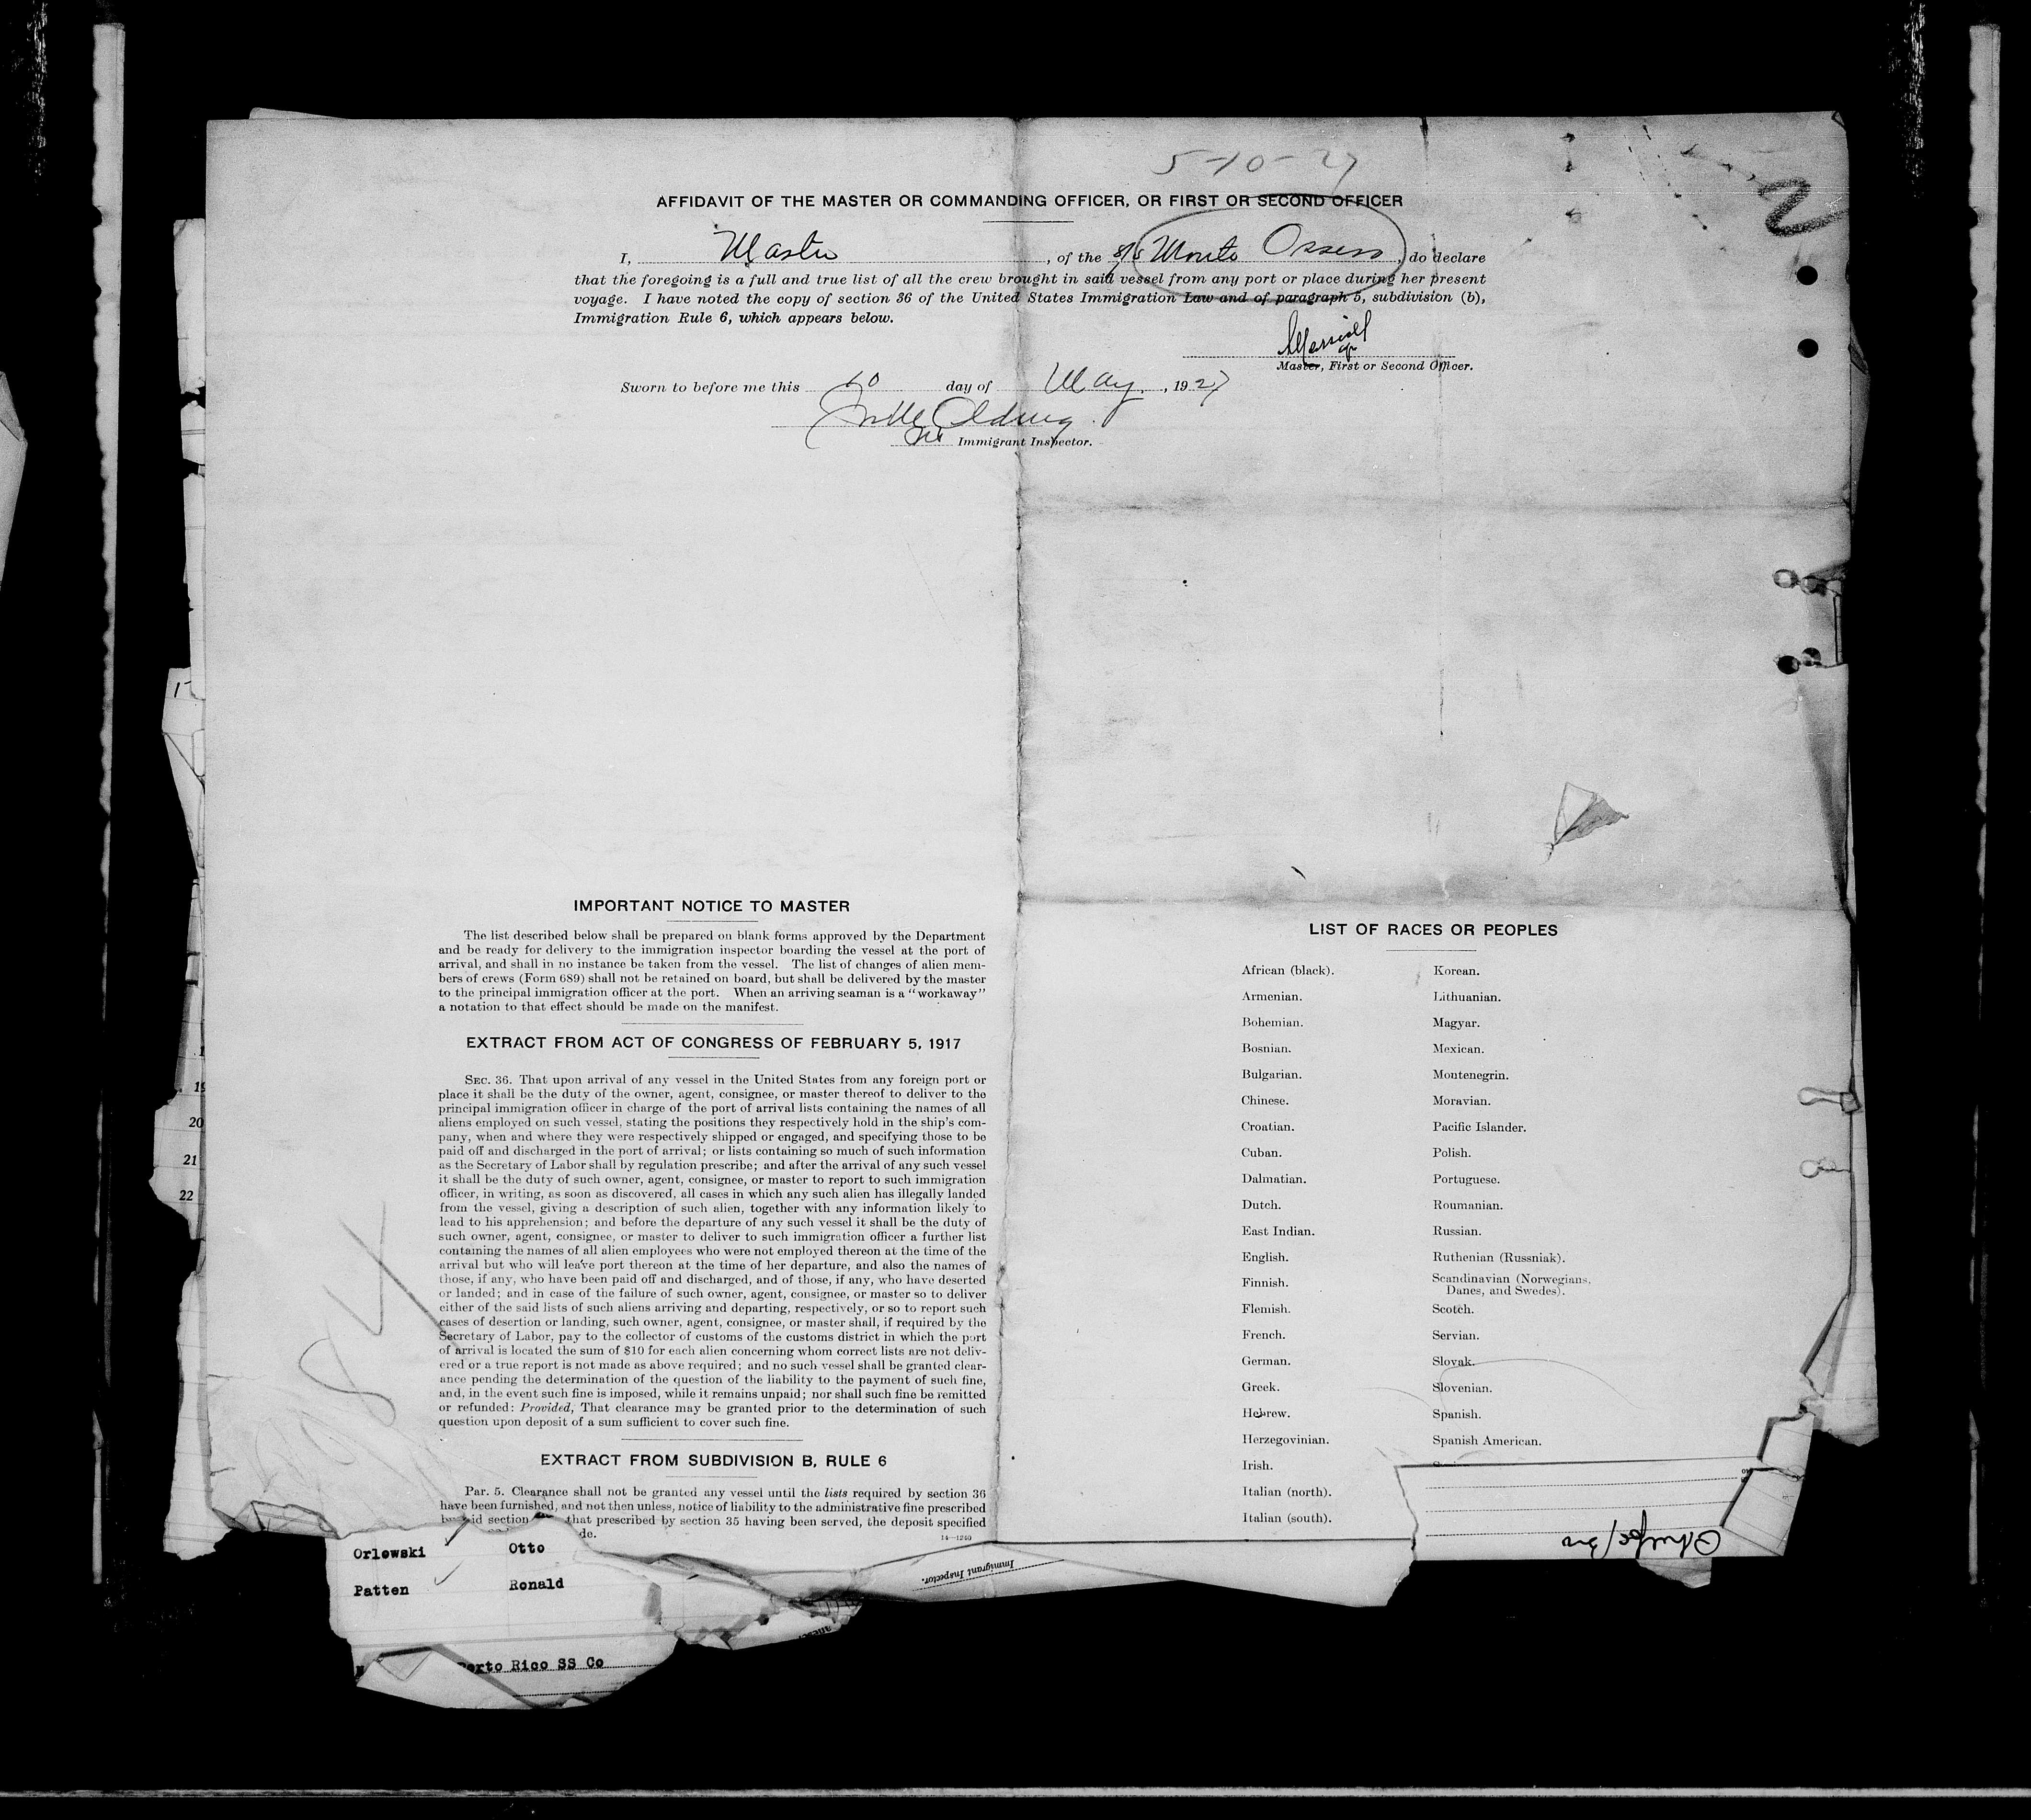 5-10-27
AFFIDAVIT OF THE MASTER OR COMMANDING OFFICER, OR FIRST OR SECOND OFFICER
I, Master, of the S/S Monte Ossero, do declare
that the foregoing is a full and true list of all the crew brought in said vessel from any port or place during her present
voyage. I have noted the copy of section 36 of the United States Immigration Law and of paragraph 5, subdivision (b),
Immigration Rule 6, which appears below.
Master, First or Second Officer.
Sworn to before me this 10 day of May, 1927
Immigrant Inspector.
IMPORTANT NOTICE TO MASTER
The list described below shall be prepared on blank forms approved by the Department
and be ready for delivery to the immigration inspector boarding the vessel at the port of
arrival, and shall in no instance be taken from the vessel. The list of changes of alien mem-
bers of crews (Form 689) shall not be retained on board, but shall be delivered by the master
to the principal immigration officer at the port. When an arriving seaman is a "workaway"
a notation to that effect should be made on the manifest.
EXTRACT FROM ACT OF CONGRESS OF FEBRUARY 5, 1917
SEC. 36. That upon arrival of any vessel in the United States from any foreign port or
place it shall be the duty of the owner, agent, consignee, or master thereof to deliver to the
principal immigration officer in charge of the port of arrival lists containing the names of all
aliens employed on such vessel, stating the positions they respectively hold in the ship's com-
pany, when and where they were respectively shipped or engaged, and specifying those to be
paid off and discharged in the port of arrival; or lists containing so much of such information
as the Secretary of Labor shall by regulation prescribe; and after the arrival of any such vessel
it shall be the duty of such owner, agent, consignee, or master to report to such immigration
officer, in writing, as soon as discovered, all cases in which any such alien has illegally landed
from the vessel, giving a description of such alien, together with any information likely to
lead to his apprehension; and before the departure of any such vessel it shall be the duty of
such owner, agent, consignee, or master to deliver to such immigration officer a further list
containing the names of all alien employees who were not employed thereon at the time of the
arrival but who will leave port thereon at the time of her departure, and also the names of
those, if any, who have been paid off and discharged, and of those, if any, who have deserted
or landed; and in case of the failure of such owner, agent, consignee, or master so to deliver
either of the said lists of such aliens arriving and departing, respectively, or so to report such
cases of desertion or landing, such owner, agent, consignee, or master shall, if required by the
Secretary of Labor, pay to the collector of customs of the customs district in which the port
of arrival is located the sum of $10 for each alien concerning whom correct lists are not deliv-
ered or a true report is not made as above required; and no such vessel shall be granted clear-
ance pending the determination of the question of the liability to the payment of such fine,
and, in the event such fine is imposed, while it remains unpaid; nor shall such fine be remitted
or refunded: Provided, That clearance may be granted prior to the determination of such
question upon deposit of a sum sufficient to cover such fine.
EXTRACT FROM SUBDIVISION B, RULE 6
PAR. 5. Clearance shall not be granted any vessel until the lists required by section 36
have been furnished, and not then unless, notice of liability to the administrative fine prescribed
id section that prescribed by section 35 having been served, the deposit specified
de.
14—1240
LIST OF RACES OR PEOPLES
African (black).
Armenian.
Bohemian.
Bosnian.
Bulgarian.
Chinese.
Croatian.
Cuban.
Dalmatian.
Dutch.
East Indian.
English.
Finnish.
Flemish.
French.
German.
Greek.
Hebrew.
Herzegovinian.
Irish.
Italian (north).
Italian (south).
Korean.
Lithuanian.
Magyar.
Mexican.
Montenegrin.
Moravian.
Pacific Islander.
Polish.
Portuguese.
Roumanian.
Russian.
Ruthenian (Russniak).
Scandinavian (Norwegians,
Danes, and Swedes).
Scotch.
Servian.
Slovak.
Slovenian.
Spanish.
Spanish American.
19
20
21
22
Orlowski Otto
Patten Ronald
Porto Rico SS Co
Immigrant Inspector.